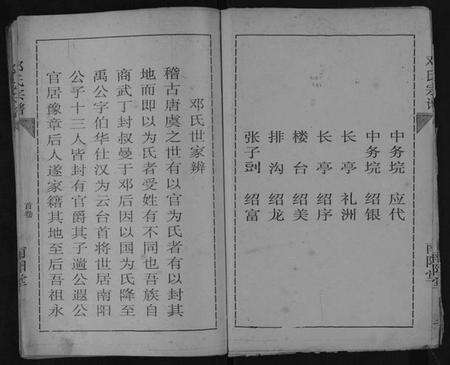 邓氏宗谱
中务院 应代
中务院 绍银
长亭 礼洲
长亭 绍序
楼台 绍美
排沟 绍龙
张子剅 绍富
南阳堂
邓氏世家辨
稽古唐虞之世有以官为氏者有以封其
地而即以为氏者受姓有不同也吾族自
商武丁封叔曼于邓后因以国为氏降至
禹公字伯华仕汉为云台首将世居南阳
公子十三人皆封有官爵其子遍公遐公
官居豫章后人遂家籍其地至后吾祖永
邓氏宗谱
首卷
南阳堂